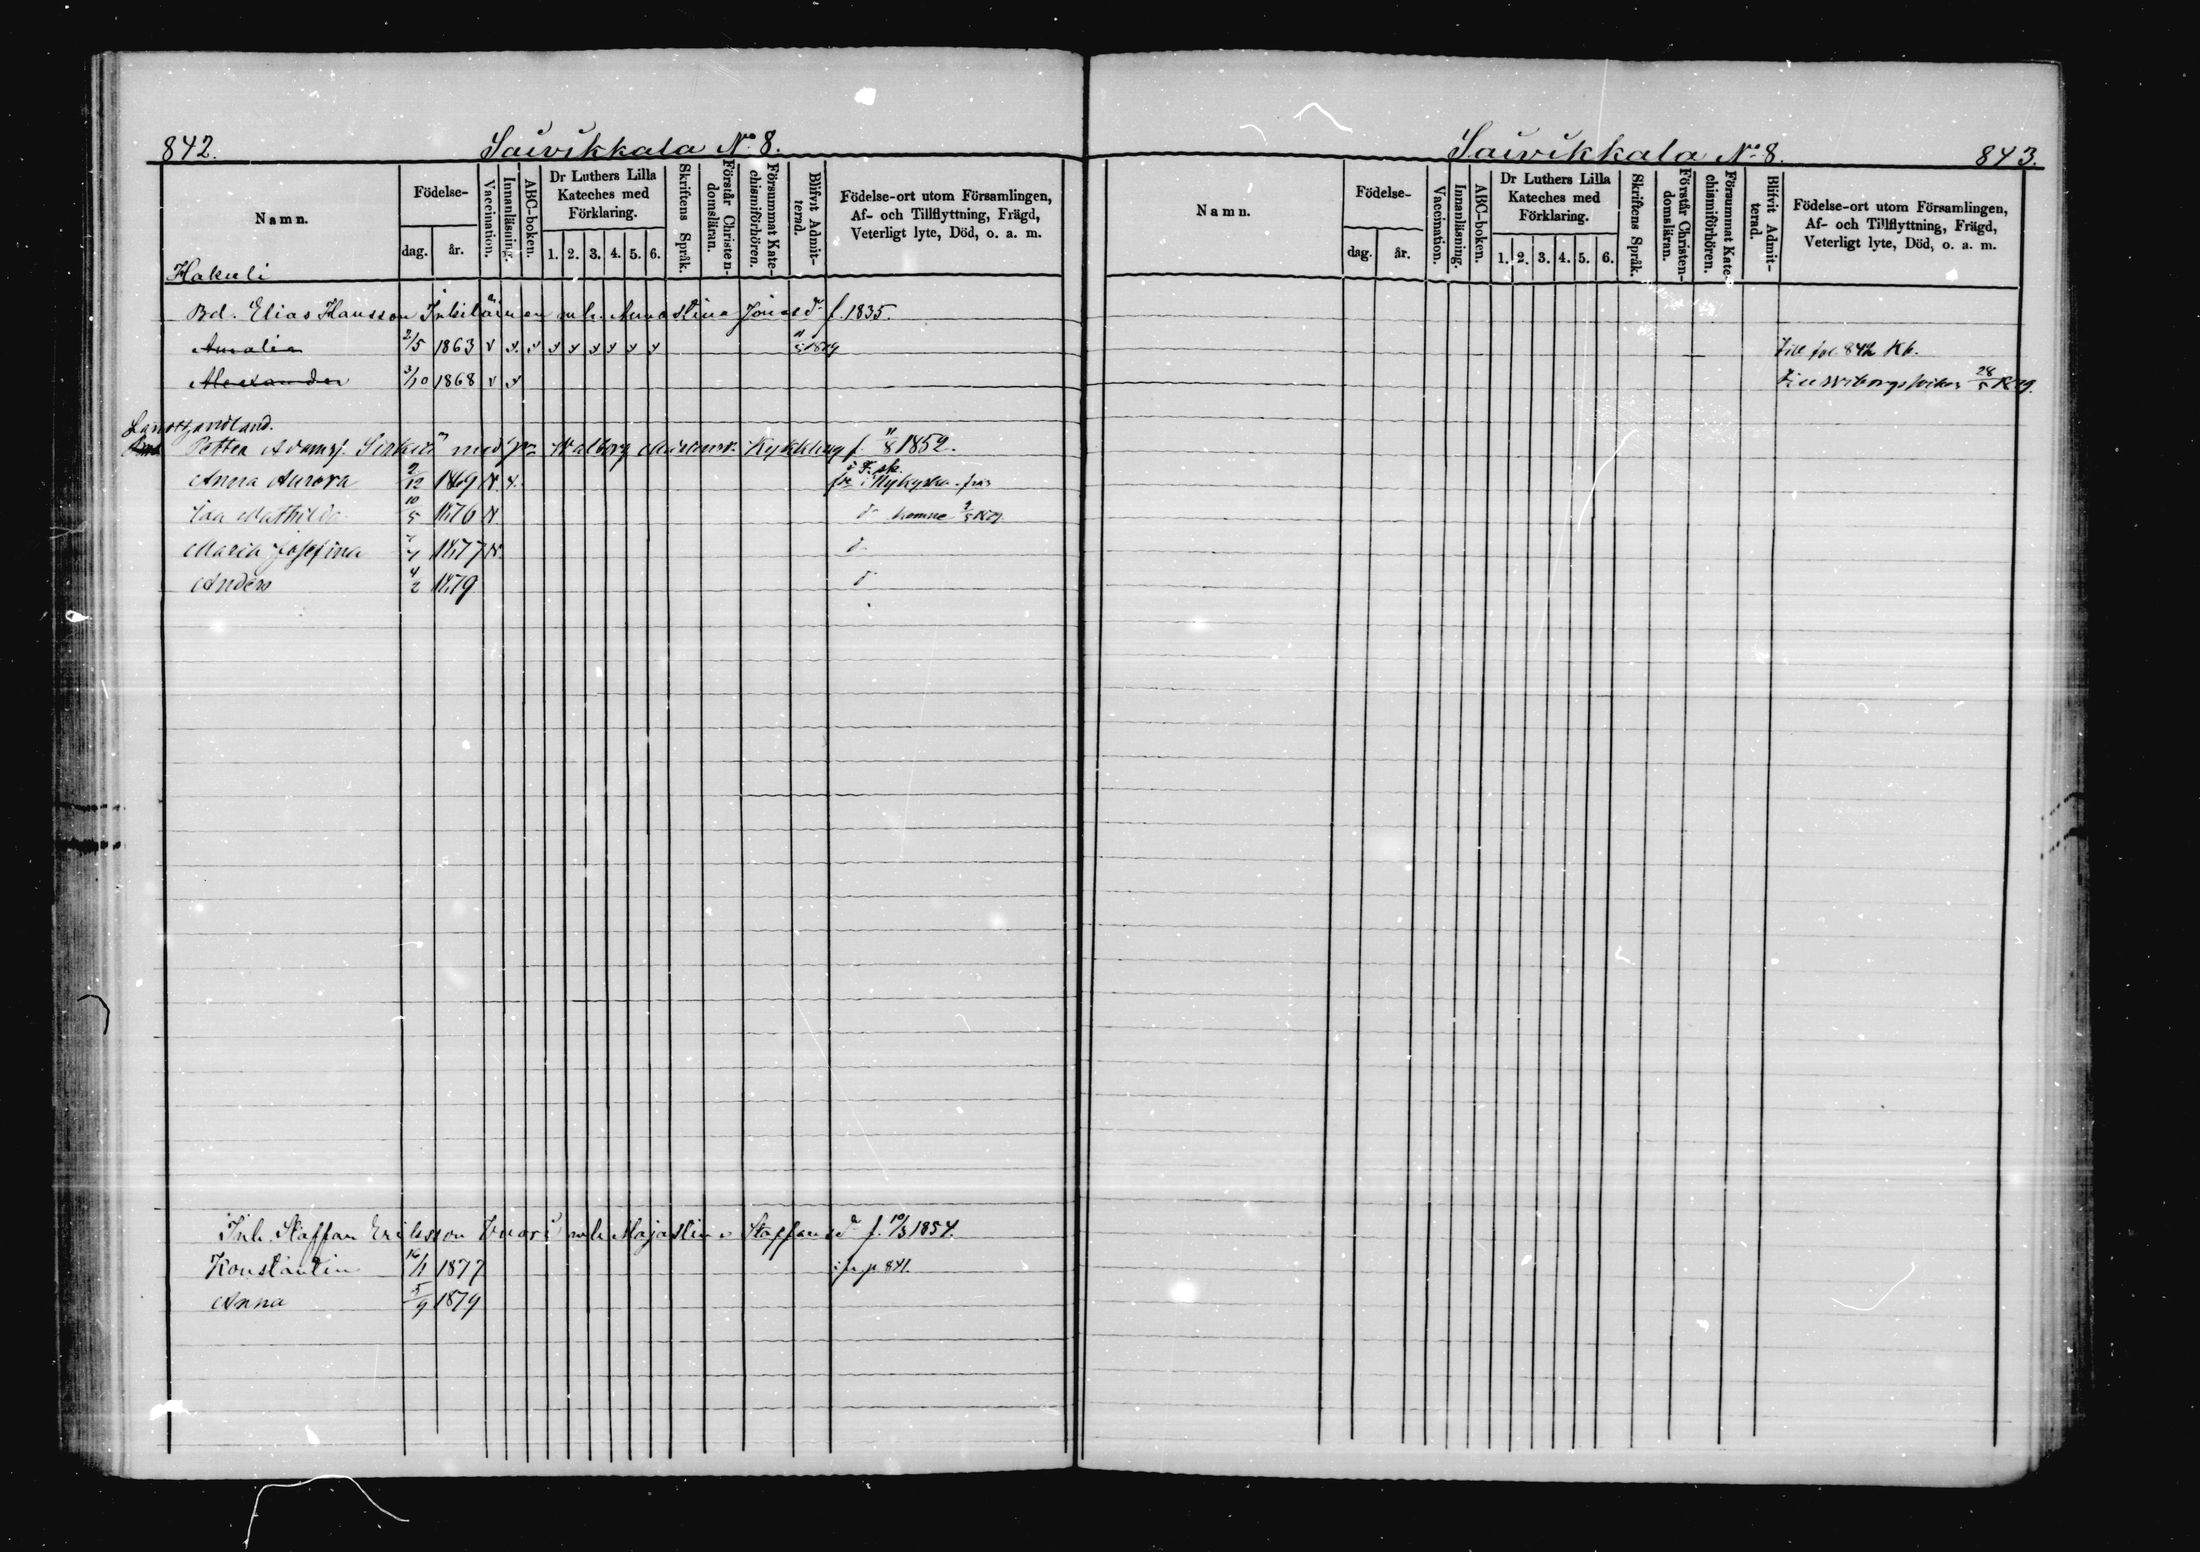 842. Saivikkala No 8.
Namn.
Födelse-
dag. år.
Vaccination.
Innanläsning.
ABC-boken.
Dr Luthers Lilla
Kateches med
Förklaring.
1. 2. 3. 4. 5. 6.
Skriftens Språk.
Förstår Christen-
domsläran.
Försummat Kate-
chismiförhören.
Blifvit Admit-
terad.
Födelse-ort utom Församlingen,
Af- och Tillflyttning, Frägd,
Veterligt lyte, Död, o. a. m.
Hakuli
Bd. Elias Hansson mh. Anna Stina Jonasdr f. 1835.
Amalia 2/5 1863 v v v v v v v v v 1879
Alexander 3/10 1868 v v
Petter Adamss. med Walborg f. 11/8 1852.
Anna Aurora 9/12 1869 v. v.
Ida Mathilda 10/5 1876 v
Maria Josefina 1877 v
Anders 4/2 1879
Inh. Staffan Eriksson mh Maja Stina Staffansdr f. 10/3 1854.
Konstantin 16/1 1877 p 841.
Anna 5/9 1879
Saivikkala No 8. 843.
Namn.
Födelse-
dag. år.
Vaccination.
Innanläsning.
ABC-boken.
Dr Luthers Lilla
Kateches med
Förklaring.
1. 2. 3. 4. 5. 6.
Skriftens Språk.
Förstår Christen-
domsläran.
Försummat Kate-
chismiförhören.
Blifvit Admit-
terad.
Födelse-ort utom Församlingen,
Af- och Tillflyttning, Frägd,
Veterligt lyte, Död, o. a. m.
Till fol. 842 Kb.
Till Wiborgs 28/5 1879.